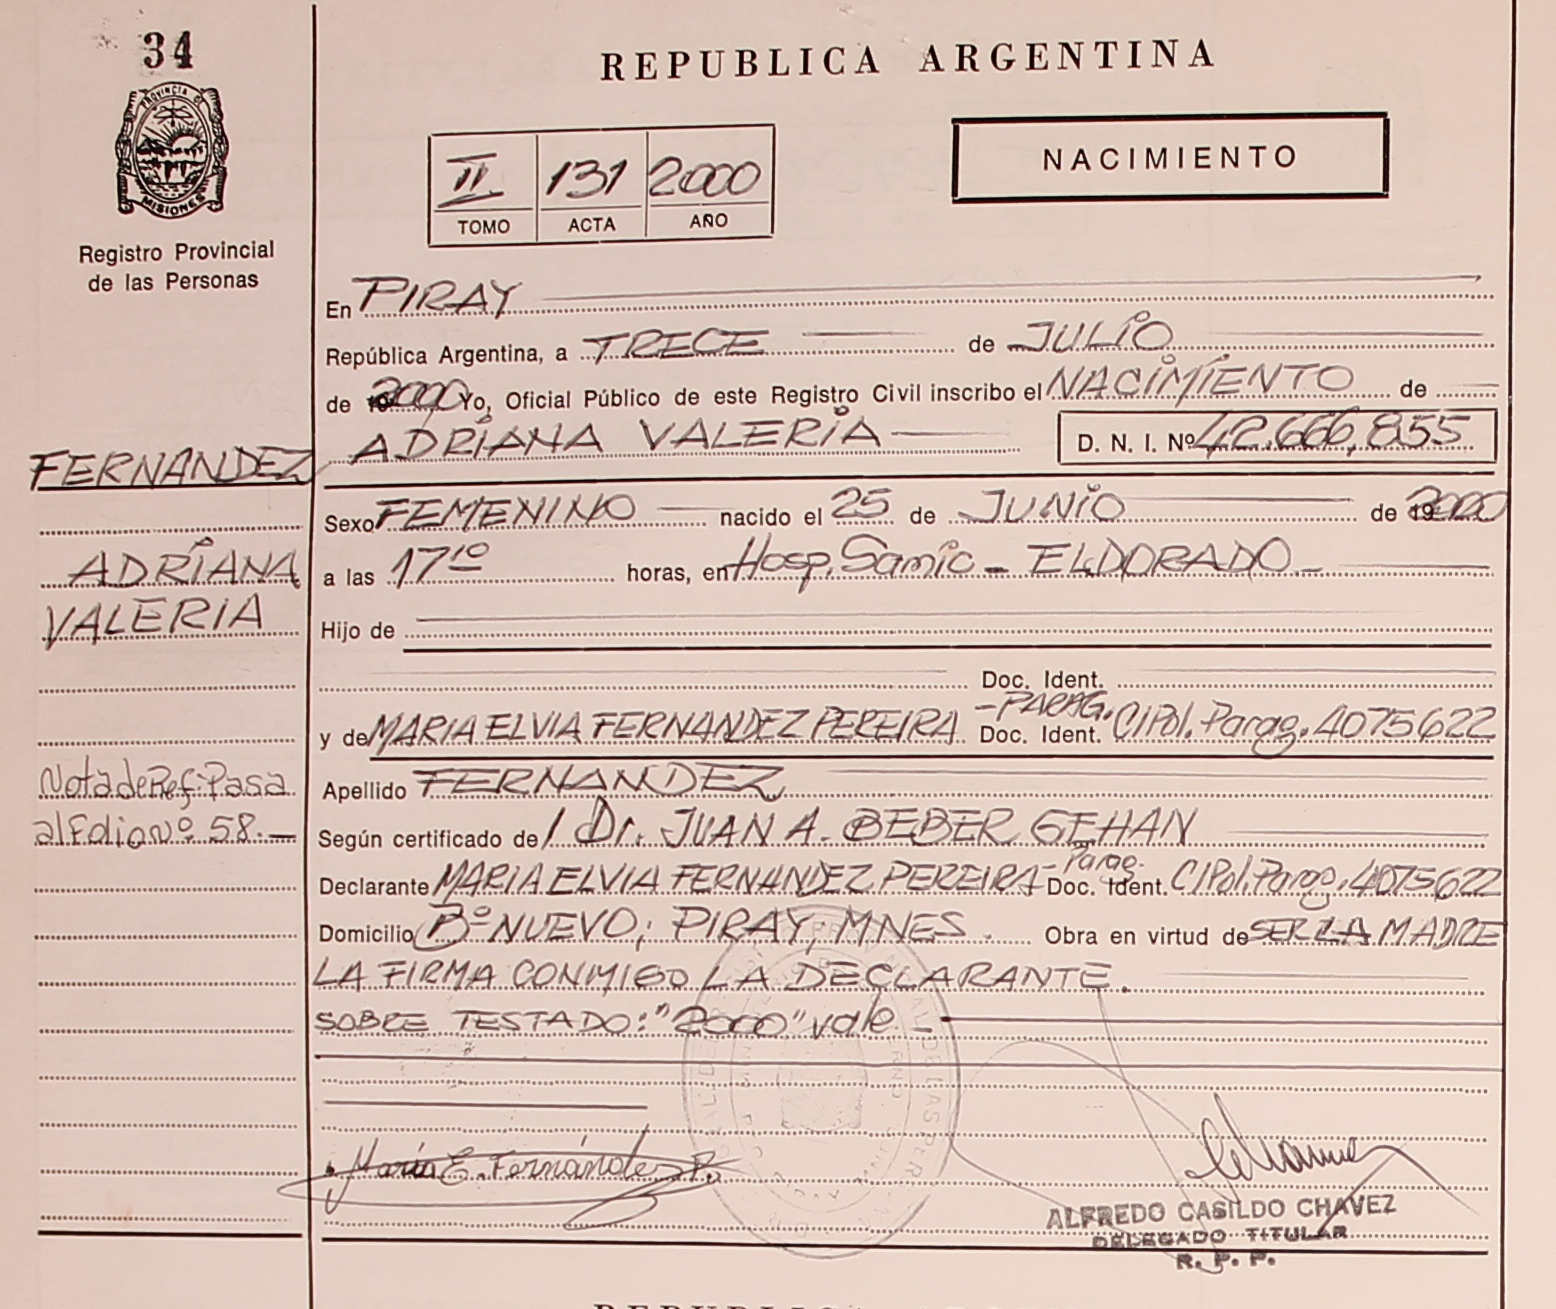 34
PROVINCIA DE
MISIONES
Registro Provincial
de las Personas
FERNANDEZ
ADRIANA
VALERIA
Nota de Ref: Pasa
al Folio Nº 58.-
REPUBLICA ARGENTINA
II 131 2000
TOMO ACTA AÑO
NACIMIENTO
En PIRAY
República Argentina, a TRECE de JULIO
de 2000 Yo, Oficial Público de este Registro Civil inscribo el NACIMIENTO de
ADRIANA VALERIA D. N. I. Nº 42.666.855
Sexo FEMENINO nacido el 25 de JUNIO de 192000
a las 17 10 horas, en Hosp. Samic - ELDORADO -
Hijo de
Doc. Ident.
y de MARIA ELVIA FERNANDEZ PEREIRA - PARAG. Doc. Ident. CI Pol. Parag. 4075622
Apellido FERNANDEZ
Según certificado de / Dr. JUAN A. BEBER GEHAN
Declarante MARIA ELVIA FERNANDEZ PEREIRA - Parag. Doc. Ident. CI Pol. Parag. 4075622
Domicilio Bº NUEVO; PIRAY; MNES. Obra en virtud de SER LA MADRE
LA FIRMA CONMIGO LA DECLARANTE.
SOBRE TESTADO: "2000" vale -
María E. Fernández P.
ALFREDO CASILDO CHAVEZ
DELEGADO TITULAR
R. P. P.